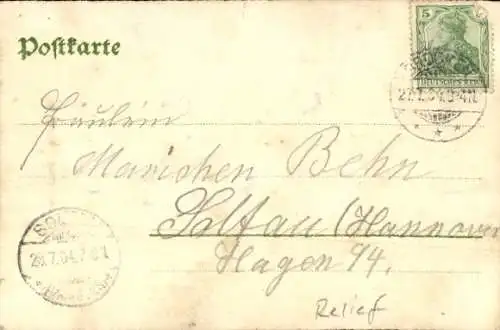 Postkarte
5
DEUTSCHES REICH
27.7.04.
Fräulein
Marichen Behn
Soltau (Hannover
Hagen 14.
SOL
28.7.04.7-8V
(Hannover)
Relief